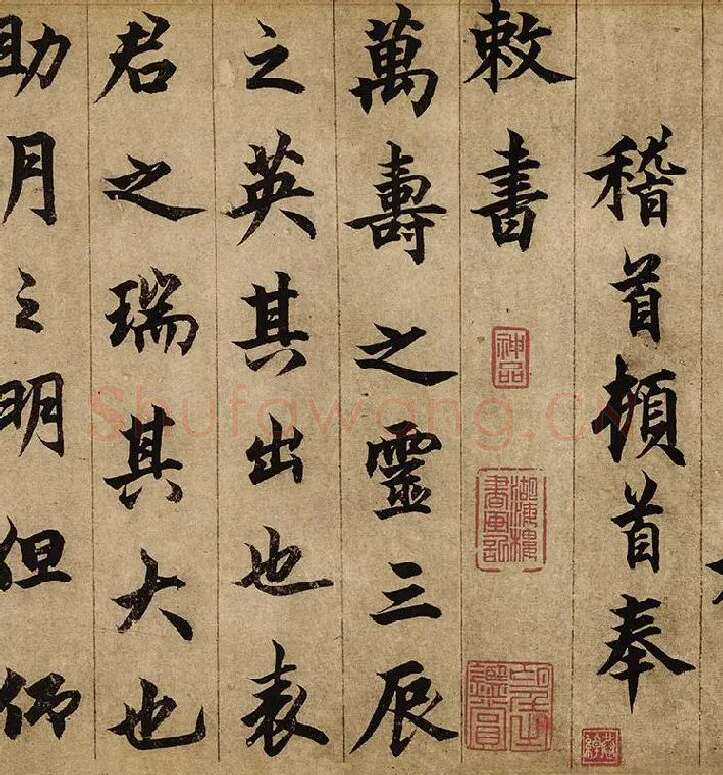 稽首頓首奉
敕書
萬壽之靈三辰
之英其出也表
君之瑞其大也
助月之明但仰
神品
Shufawang.cn